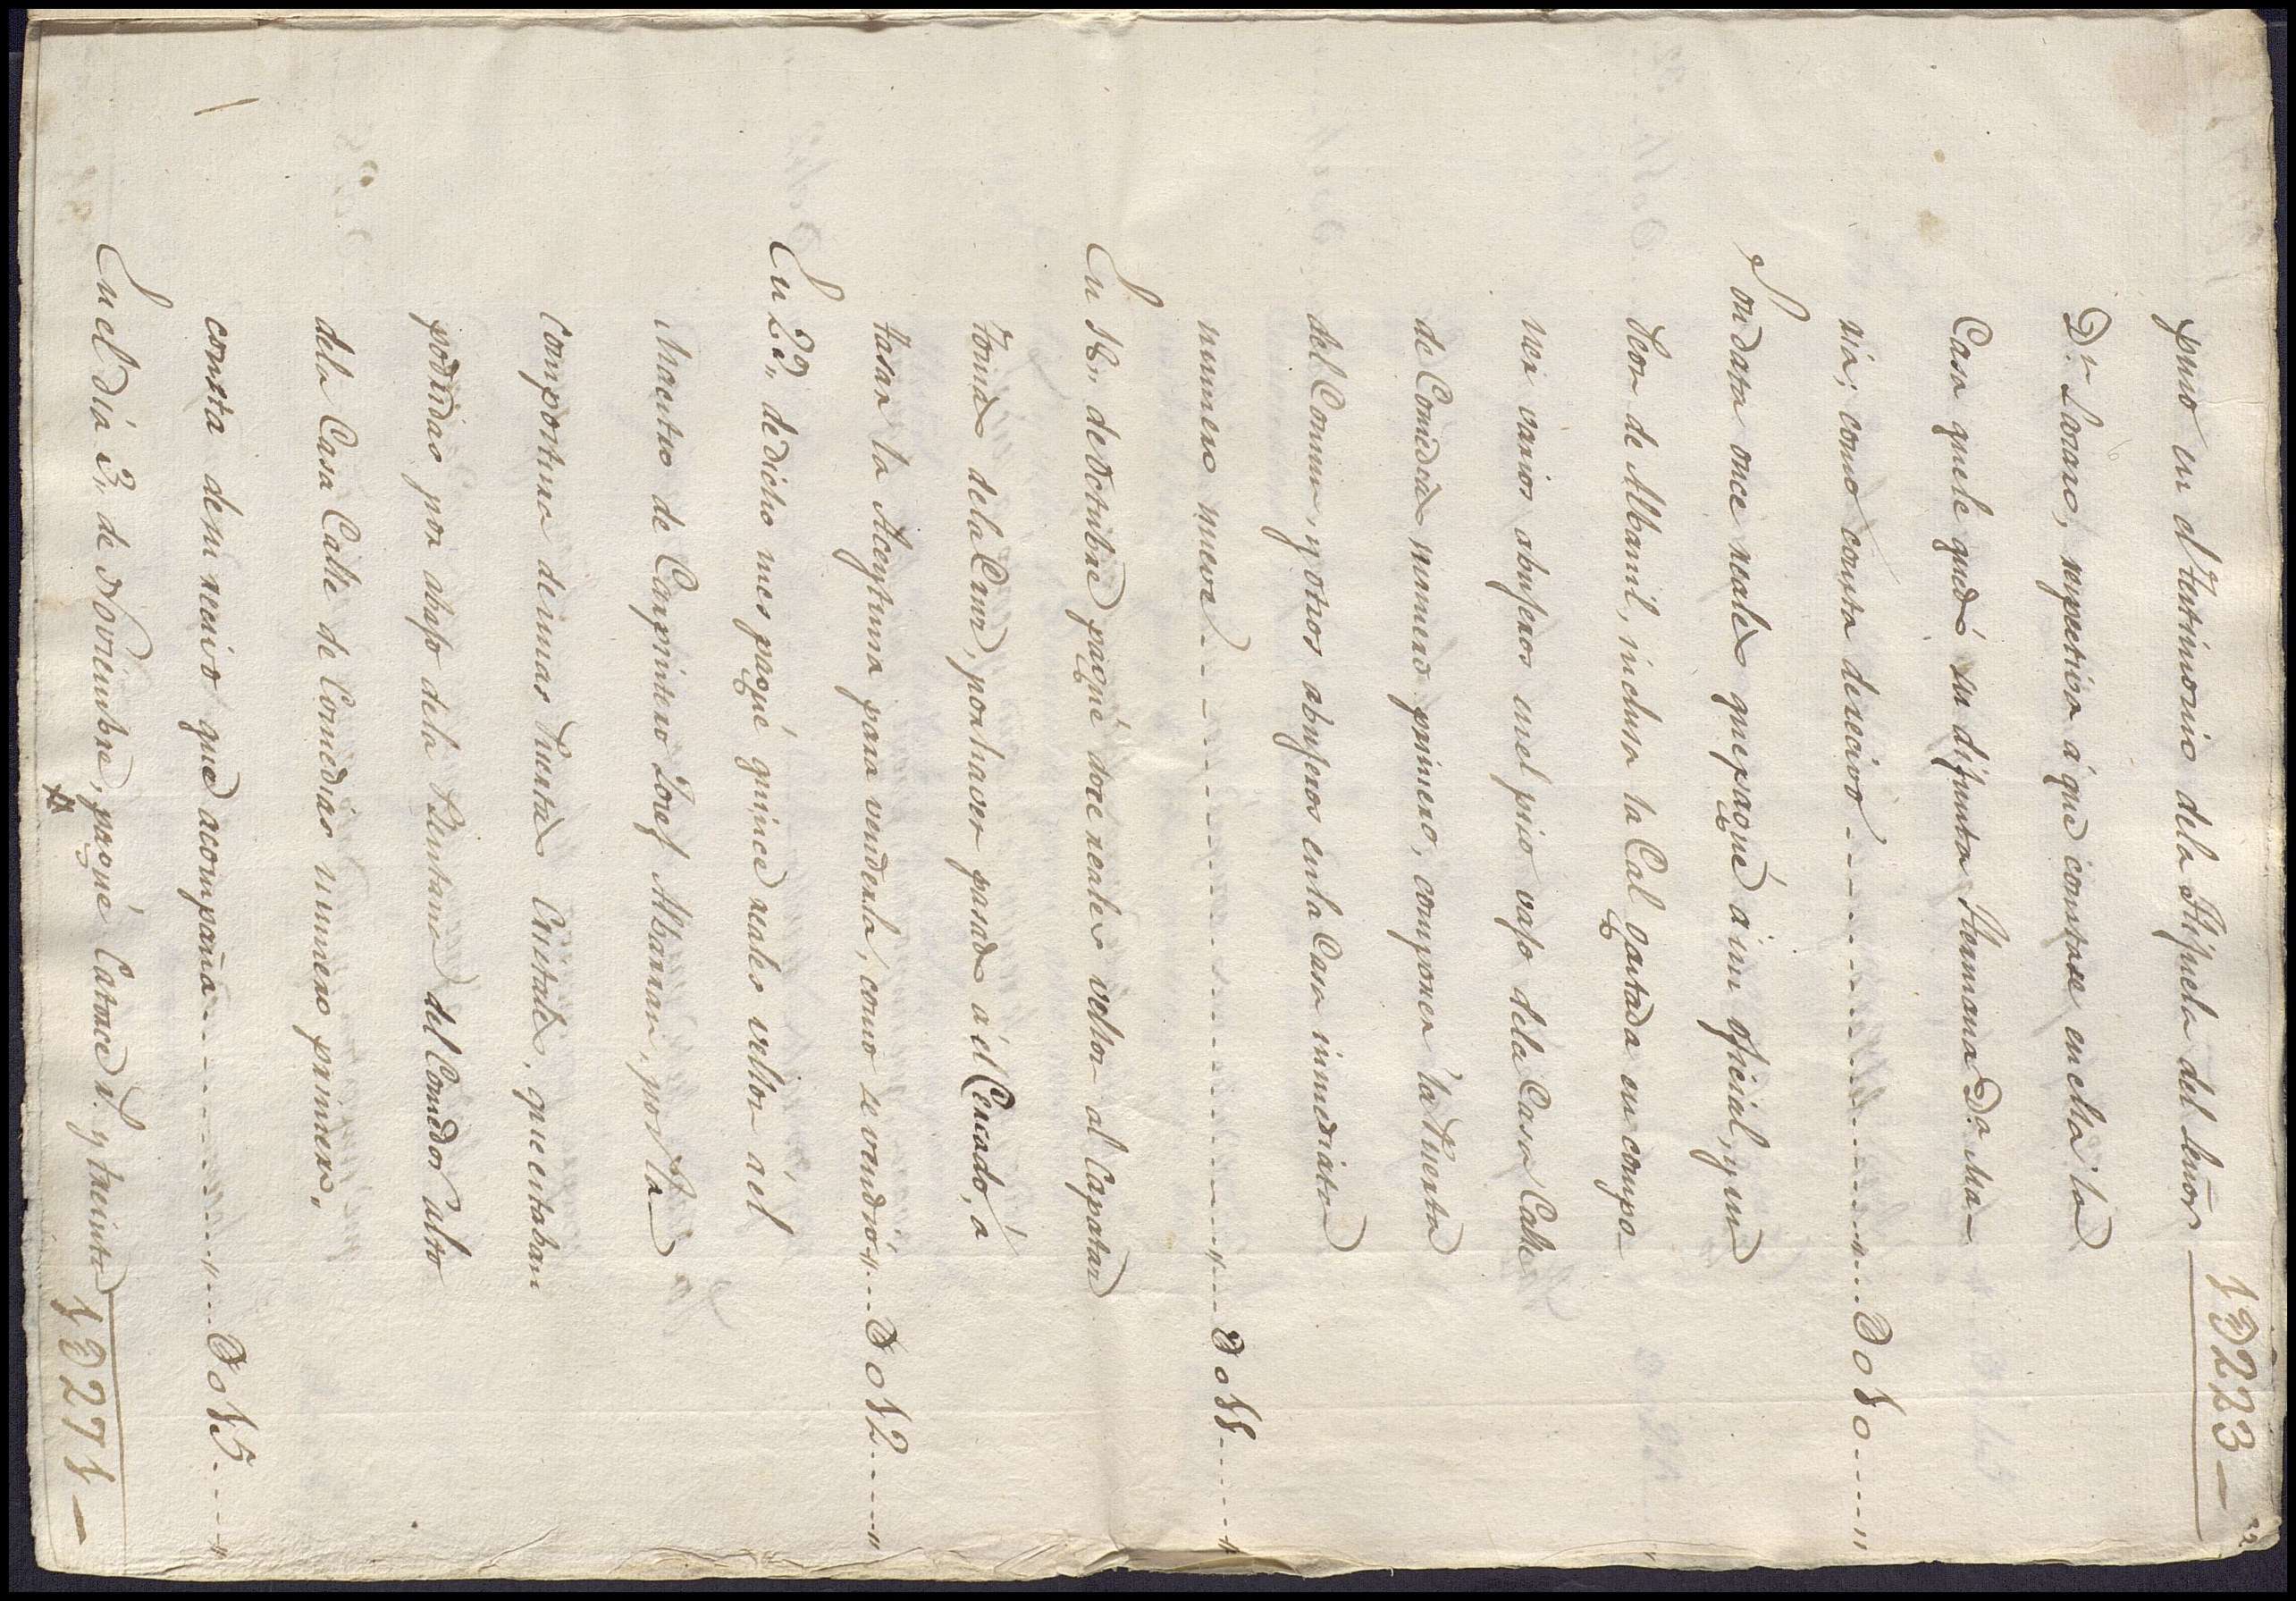 1D223-
puso en el testimonio dela Hijuela del Señor
Dn. Lorano, respectiva á que constase en ella la
Casa que le quedó su difunta Hermana Da. Ma-
ria; como consta de recivo ---------- " --- D010 ---- "
Son data once reales que pagué á un oficial, y un
Peon de Albañil, inclusa la Cal gastada en compo-
ner varios abujeros en el piso vajo dela Casa Calle
de Comedias numero primero, componer la Puerta
del Comun, y otros abujeros en la Casa inmediata
numero nueve ---------- " --- D011 ---- "
En 18,, de Octubre pagué doce reales vellon al Capataz
Tomas dela Cruz, por haver pasado á el Cercado, á
tasar la Aceytuna para venderla, como se vendió " --- D012 ---- "
En 22,, de dicho mes pagué quince reales vellon á el
Maestro de Carpintero Josef Albarran, por la
compostura de unas Puertas Cristales, que estaban
podridas por abajo dela Bentana del Comedor alto
dela Casa Calle de Comedias numero primero,,
consta de su recivo que acompaña ---------- " --- D015 ---- "
En el dia 3,, de Noviembre, pagué Catorce rs. y treinta
1D271-